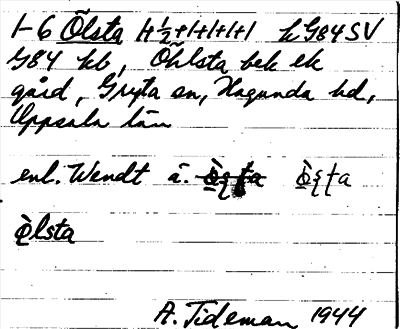 1-6 Ölsta 4 ½+1+1+1+1 k G84 SV
G84 kb, Öhlsta bek ek
gård, Gryta sn, Hagunda hd,
Uppsala län
enl. Wendt ä.
ò̤lsta
A. Tideman 1944